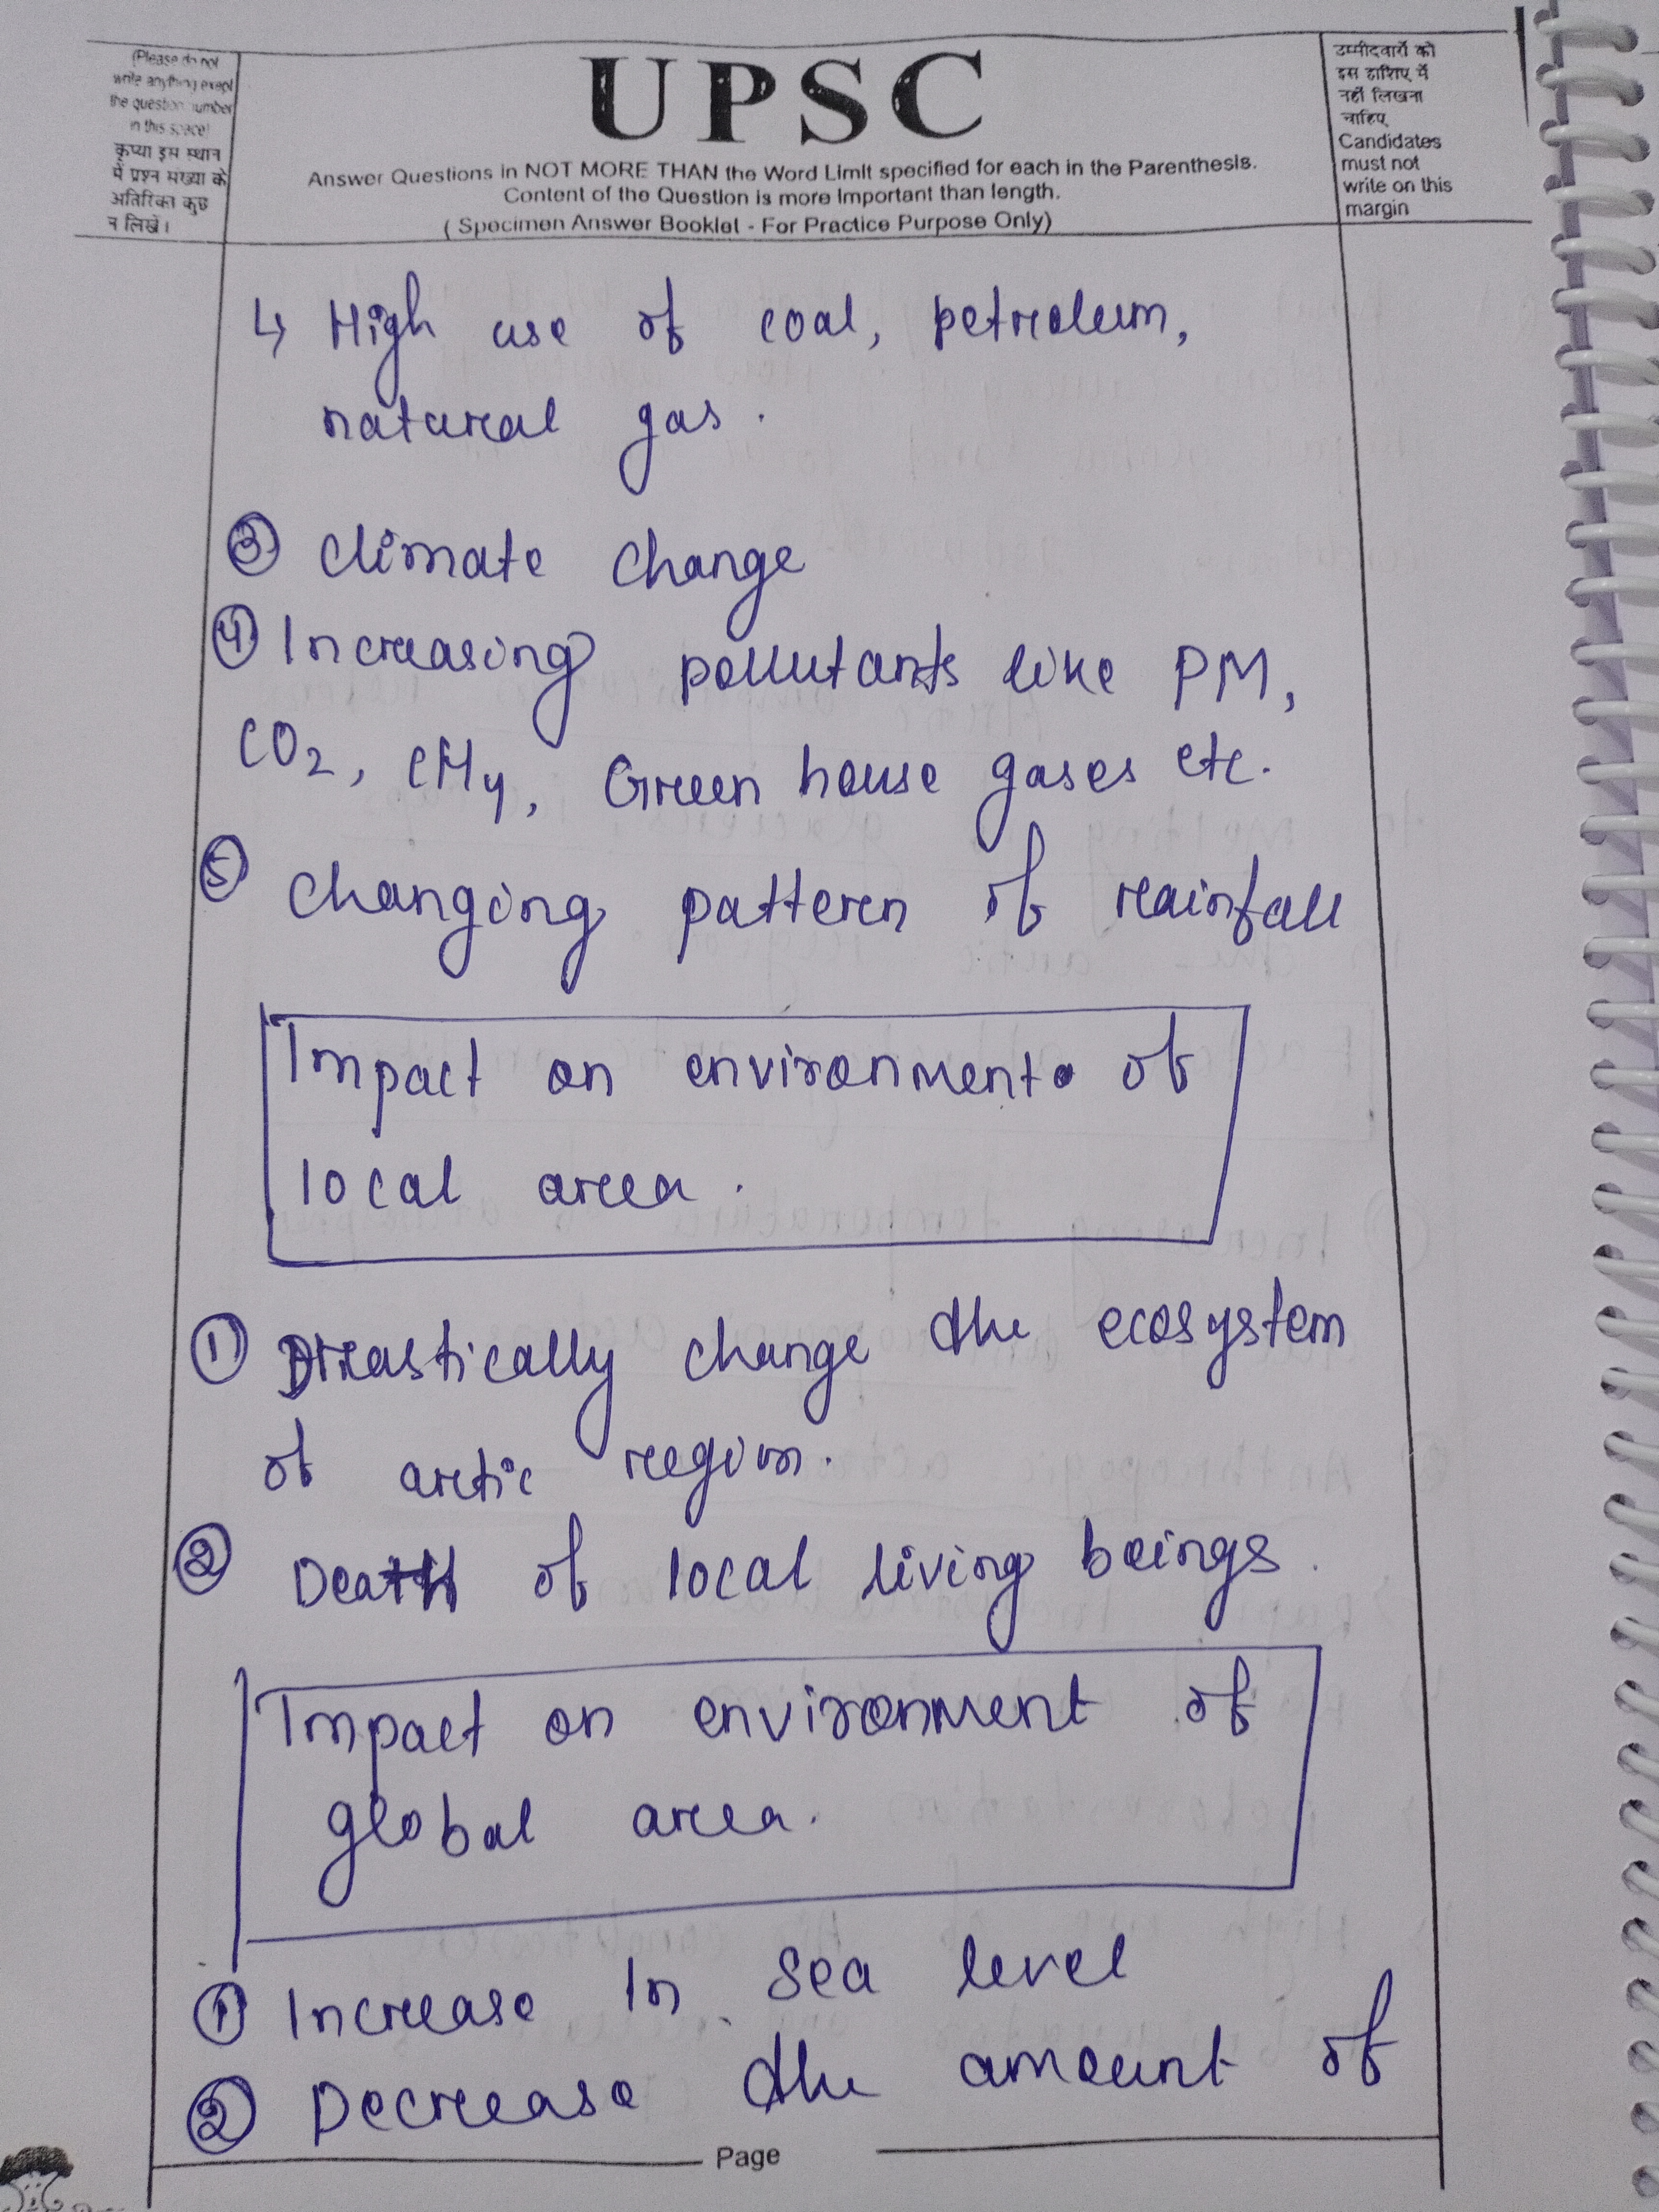 (Please do not
write anything exept
the question number
in this space)
कृप्या इस स्थान
में प्रश्न संख्या के
अतिरिक्त कुछ
न लिखें।
UPSC
Answer Questions in NOT MORE THAN the Word Limit specified for each in the Parenthesis.
Content of the Question is more Important than length.
( Specimen Answer Booklet - For Practice Purpose Only)
उम्मीदवारों को
इस हाशिए में
नहीं लिखना
चाहिए
Candidates
must not
write on this
margin
↳ High use of coal, petroleum,
natural gas.
③ climate change
④ Increasing pollutants like PM,
CO2, CH4, Green house gases etc.
⑤ changing pattern of rainfall
Impact on environment of
local area.
① Drastically change the ecosystem
of arctic region.
② Death of local living beings.
Impact on environment of
global area.
① Increase in sea level
② Decrease the amount of
Page